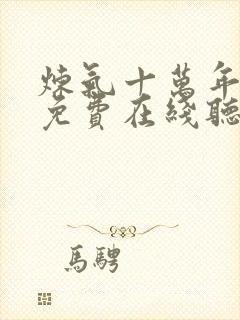 煉氣十萬年
免費在綫聽
馬騁